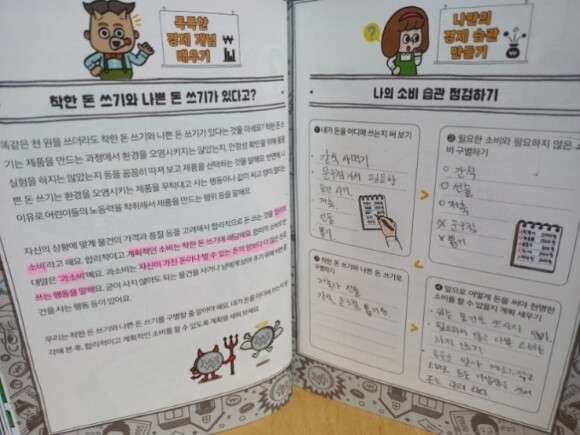 똑똑한
경제 개념
배우기
착한 돈 쓰기와 나쁜 돈 쓰기가 있다고?
똑같은 천 원을 쓰더라도 착한 돈 쓰기와 나쁜 돈 쓰기가 있다는 것을 아세요? 착한
기는 제품을 만드는 과정에서 환경을 오염시키지는 않았는지, 안정성 확인을 위해 동물
실험을 하지는 않았는지 등을 꼼꼼히 따져 보고 제품을 선택하는 것을 말해요. 반면에 나
쁜 돈 쓰기는 환경을 오염시키는 제품을 무턱대고 사는 행동이나 값이 싸고 양이 많다는
이유로 어린이들의 노동력을 착취해서 제품을 만드는 행위 등을 말해요.
자신의 상황에 맞게 물건의 가격과 품질 등을 고려해서 합리적으로 돈 쓰는 것을
소비'라고 해요. 합리적이고 계획적인 소비는 착한 돈 쓰기에 해당해요. 합리적 소비의 반
대말은 '과소비'예요. 과소비는 자신이 가진 돈이나 벌 수 있는 돈의 양보다 더 많은 돈을
쓰는 행동을 말해요. 굳이 사지 않아도 되는 물건을 사거나 남에게 보여 주기 위해 비싼 물
건을 사는 행동 등이 있어요.
우리는 착한 돈 쓰기와 나쁜 돈 쓰기를 구분할 줄 알아야 해요. 내가 돈을 어디에 쓰는지 생
각해 본 후, 합리적이고 계획적인 소비를 할 수 있도록 계획을 세워 보세요.
나만의
경제 습관
만들기
나의 소비 습관 점검하기
1 내가 돈을 어디에 쓰는지 써 보기
간식 사먹기
저축
선물
뽑기
2 필요한 소비와 필요하지 않은 소
비 구별하기
O 간식
O 선물
O 저축
X 문구점
X 뽑기
3 착한 돈 쓰기와 나쁜 돈 쓰기로
구별하기
4 앞으로 어떻게 돈을 써야 현명한
소비를 할 수 있을지 계획 세우기